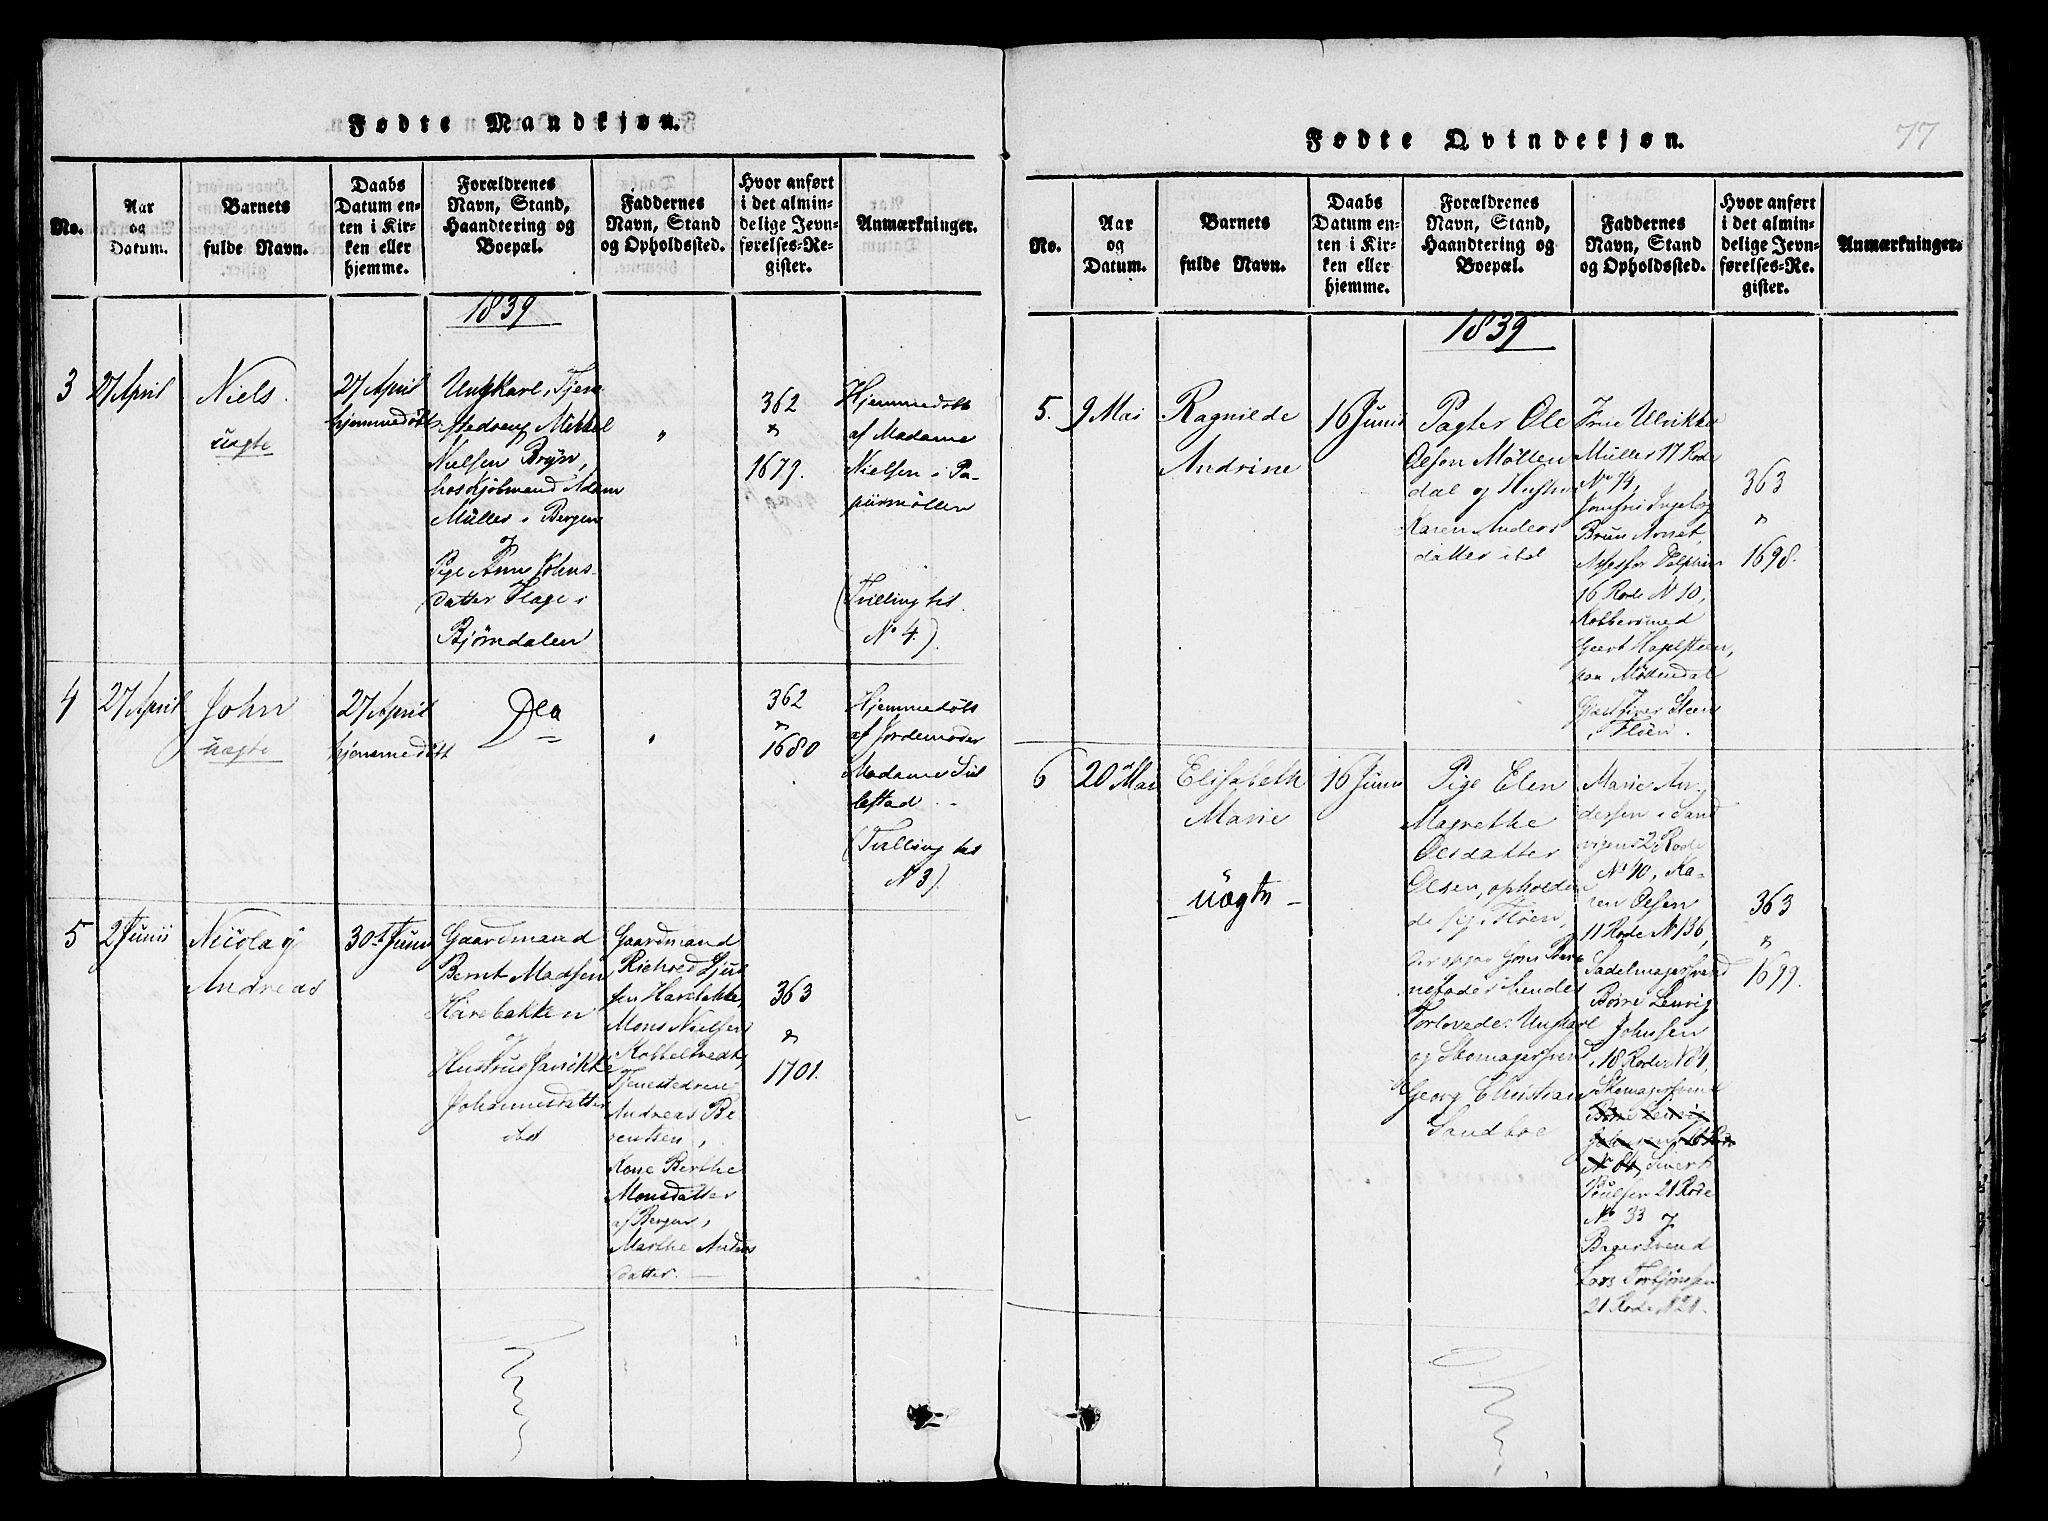 Fødte Mandkjøn.
No.
Aar
og
Datum.
Barnets
fulde Navn.
Daabs
Datum en-
ten i Kir-
ken eller
hjemme.
Forældrenes
Navn, Stand,
Haandtering og
Boepæl.
Faddernes
Navn, Stand
og Opholdssted.
Hvor anført
i det almin-
delige Jevn-
førelses-Re-
gister.
Anmærkninger.
1839
3
27 April
Niels.
uægte
27 April
hjemmedøbt
Ungkarl, Tjene
stedreng Mikkel
Nielsen Brÿn,
hos Kjøbmand Adam
Müller i Bergen
og
Pige Anne Johns-
datter Hage i
Bjørndalen
"
362
&
1679.
Hjemmedøbt
af Madame
Nielsen i Pa-
piirmøllen
(Tvilling til
No 4.)
4
27 April
John
uægte
27 April
hjemmedøbt
Do
"
362
&
1680
Hjemmedøbt
af Jordemoder
Madame
lestad
(Tvilling til
N 3).
5
2 Junii
Nicolaÿ
Andreas
30te Junii
Gaardmand
Bernt Madsen
Harebakken
og
Hustrue
Johannesdatter
ibd
Gaardmand
Rickved
sen Harebakke,
Mons Nielsen
Kobbeltvedt,
Tjenestedreng
Andreas Be-
rentsen,
Kone Berthe
Monsdatter
af Bergen,
Marthe Anders
datter.
363
&
1701.
77
Fødte Qvindekjøn.
No.
Aar
og
Datum.
Barnets
fulde Navn.
Daabs
Datum en-
ten i Kir-
ken eller
hjemme.
Forældrenes
Navn, Stand,
Haandtering og
Boepæl.
Faddernes
Navn, Stand
og Opholdssted.
Hvor anført
i det almin-
delige Jevn-
førelses-Re-
gister.
Anmærkninger.
1839
5.
9 Mai
Ragnilde
Andrine
16 Junii
Pagter Ole
Olsen Møllen
dal og Hustrue
Karen Anders
datter ibd
Frue Ulrikke
Müller 17 Rode
No 74,
Jomfru Ingeborg
Brun
16 Rode N 10,
Kobbersmed
Geert Hagelsteen,
paa Møllendal
Gjæstgiver Steen
i Fløen.
363
&
1698.
6
20de Mai
Elisabeth
Marie
uægte
16 Junii
Pige Elen
Magrethe
Olsdatter
Olsen, opholden
de sig i Fløen,
har opgivet som Barne
nefader hendes
Forlovede Ungkarl
og Skomagersvend
Georg Christian
Sandboe
Marie An-
dersen i Sand
vigen 2 Rode
No 40, Ka-
ren Olsen
11 Rode N 136,
Sadelmagersvend
Børre Lenvig
Johnsen
18 Rode N 84,
Skomagersvend
Børre Lenvig
Johnsen
No 84, Sivert
Poulsen 21 Rode
No 33 og
Bagersvend
Lars Torbjønsen
21 Rode N 21.
363
&
1699.